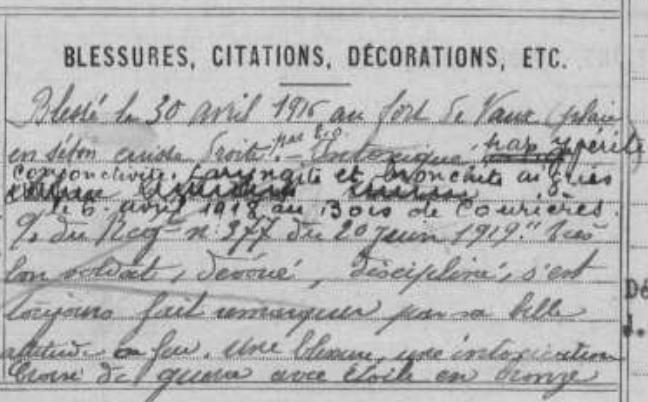 BLESSURES, CITATIONS, DÉCORATIONS, ETC.
Blessé le 30 avril 1916 au fort de Vaux (plaie
en séton cuisse droite par E.O. – Intoxiqué par ypérite
Conjonctivite, Laryngite et bronchite aigües
le 6 avril 1918 au Bois de Courières.
du Reg^t n° 377 du 20 juin 1919 "Très
bon soldat, dévoué, discipliné, s'est
toujours fait remarquer par sa belle
attitude au feu. Une blessure, une intoxication
Croix de guerre avec étoile en bronze
Dé